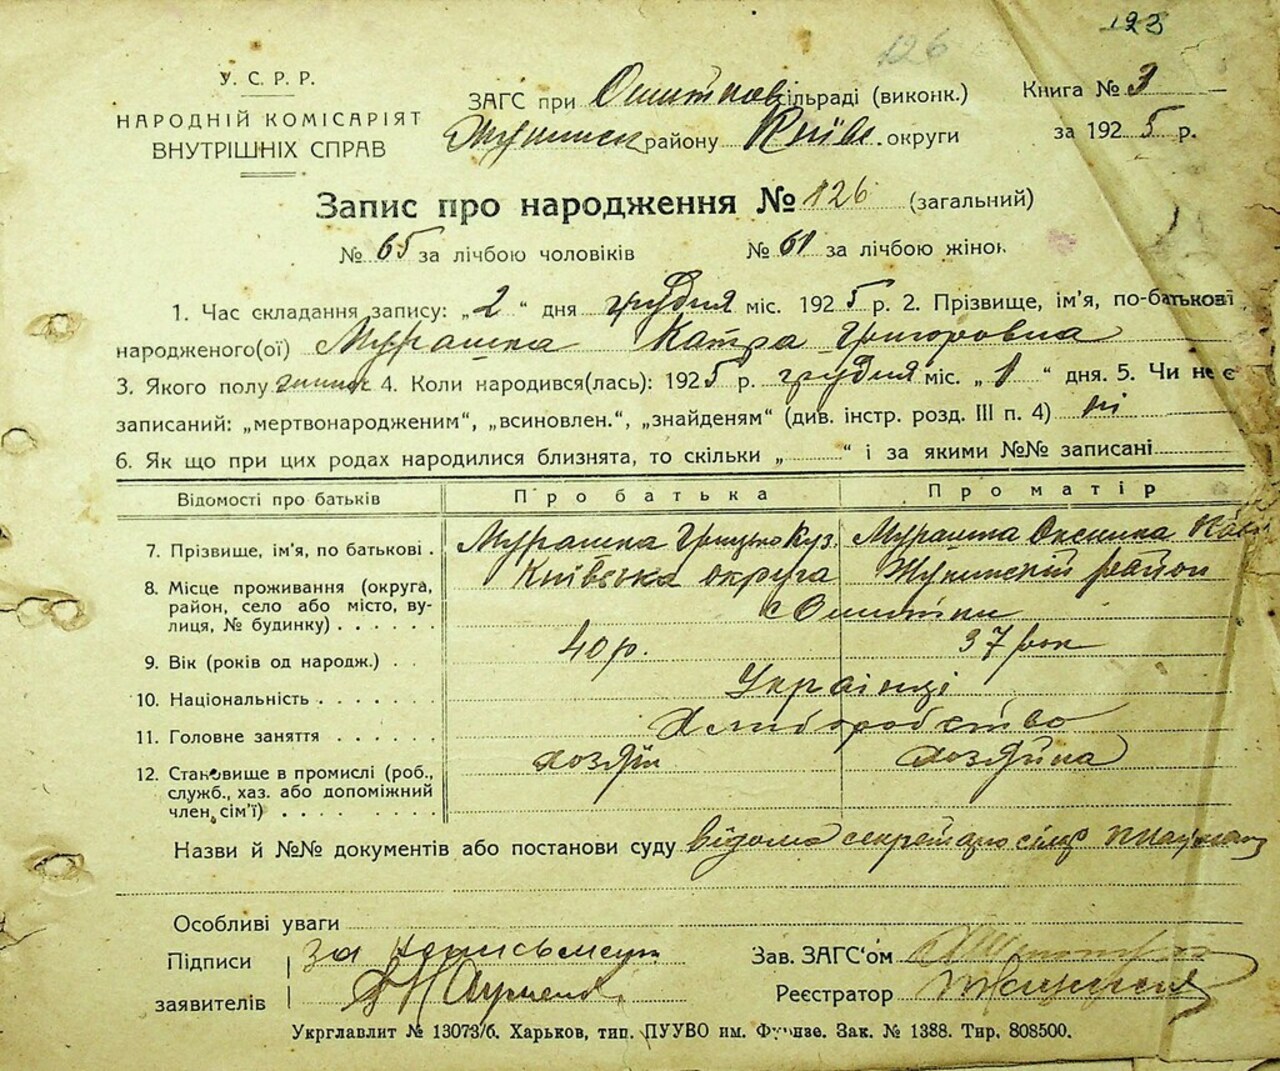 123
126
У. С. Р. Р.
НАРОДНІЙ КОМІСАРІЯТ
ВНУТРІШНІХ СПРАВ
ЗАГС при Ошитків сільраді (виконк.)
Жукинськ району Київс. округи
Книга № 3
за 1925 р.
Запис про народження № 126 (загальний)
№ 65 за лічбою чоловіків № 61 за лічбою жінок
1. Час складання запису: „2“ дня грудня міс. 1925 р. 2. Прізвище, ім'я, по-батькові
народженого(ої) Мурашка Катра Григоровна
3. Якого полу жинок 4. Коли народився(лась): 1925 р. грудня міс. „1“ дня. 5. Чи не є
записаний: „мертвонародженим“, „всиновлен.“, „знайденям“ (див. інстр. розд. III п. 4) ні
6. Як що при цих родах народилися близнята, то скільки „ “ і за якими №№ записані
Відомості про батьків Про батька Про матір
7. Прізвище, ім'я, по батькові . Мурашка Грицько Куз. Мурашка Оксинка
8. Місце проживання (округа, Київська округа Жукинскій район
район, село або місто, ву- с Ошитки
лиця, № будинку) . . . . . .
9. Вік (років од народж.) . . 40 р. 37 рок
10. Національність . . . . . . Українці
11. Головне заняття . . . . . Хлиборобство
12. Становище в промислі (роб., хозяїн хозяйка
служб., хаз. або допоміжний
член, сім'ї) . . . . . . . .
Назви й №№ документів або постанови суду відома секретарю сільр
Особливі уваги
Підписи за неписьмен
заявителів
Зав. ЗАГС'ом
Реєстратор
Укрглавлит № 13073/б. Харьков, тип. ПУУВО им. Фрунзе. Зак. № 1388. Тир. 808500.